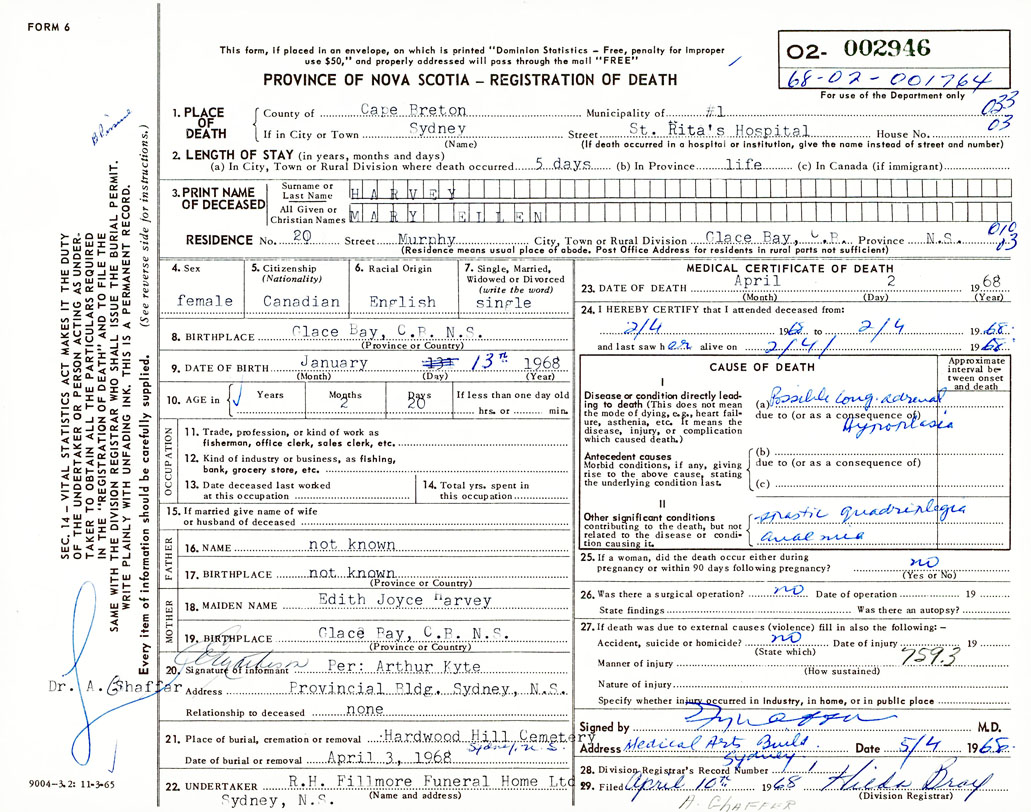 FORM 6
This form, if placed in an envelope, on which is printed "Dominion Statistics – Free, penalty for improper
use $50," and properly addressed will pass through the mail "FREE"
PROVINCE OF NOVA SCOTIA – REGISTRATION OF DEATH
O2- 002946
68-02-001764
For use of the Department only
033
03
1. PLACE OF DEATH
County of Cape Breton Municipality of #1
If in City or Town Sydney Street St. Rita's Hospital House No.
(Name) (If death occurred in a hospital or institution, give the name instead of street and number)
2. LENGTH OF STAY (in years, months and days)
(a) In City, Town or Rural Division where death occurred 5 days (b) In Province life (c) In Canada (if immigrant)
3. PRINT NAME OF DECEASED
Surname or Last Name HARVEY
All Given or Christian Names MARY ELLEN
010
03
RESIDENCE No. 20 Street Murphy City, Town or Rural Division Glace Bay, C.B. Province N.S.
(Residence means usual place of abode. Post Office Address for residents in rural parts not sufficient)
4. Sex
female
5. Citizenship (Nationality)
Canadian
6. Racial Origin
English
7. Single, Married, Widowed or Divorced (write the word)
single
8. BIRTHPLACE Glace Bay, C.B. N.S.
(Province or Country)
9. DATE OF BIRTH January 13th 1968
(Month) (Day) (Year)
10. AGE in Years Months 2 Days 20 If less than one day old
hrs. or min.
OCCUPATION
11. Trade, profession, or kind of work as
fisherman, office clerk, sales clerk, etc.
12. Kind of industry or business, as fishing,
bank, grocery store, etc.
13. Date deceased last worked
at this occupation
14. Total yrs. spent in
this occupation
15. If married give name of wife
or husband of deceased
FATHER
16. NAME not known
17. BIRTHPLACE not known
(Province or Country)
MOTHER
18. MAIDEN NAME Edith Joyce Harvey
19. BIRTHPLACE Glace Bay, C.B. N.S.
(Province or Country)
20. Signature of informant Per: Arthur Kyte
Address Provincial Bldg. Sydney, N.S.
Relationship to deceased none
21. Place of burial, cremation or removal Hardwood Hill Cemetery
Sydney, N.S.
Date of burial or removal April 3, 1968
22. UNDERTAKER R.H. Fillmore Funeral Home Ltd
Sydney, N.S. (Name and address)
MEDICAL CERTIFICATE OF DEATH
23. DATE OF DEATH April 2 1968
(Month) (Day) (Year)
24. I HEREBY CERTIFY that I attended deceased from:
2/4 1968 to 2/4 1968
and last saw her alive on 2/4/ 1968
CAUSE OF DEATH
Approximate interval between onset and death
I
Disease or condition directly leading to death (This does not mean the mode of dying, e.g., heart failure, asthenia, etc. It means the disease, injury, or complication which caused death.)
(a) Possible cong. adrenal
due to (or as a consequence of)
Hypoplasia
Antecedent causes
Morbid conditions, if any, giving rise to the above cause, stating the underlying condition last.
(b)
due to (or as a consequence of)
(c)
II
Other significant conditions
contributing to the death, but not related to the disease or condition causing it.
spastic quadriplegia
anaemia
25. If a woman, did the death occur either during
pregnancy or within 90 days following pregnancy? no
(Yes or No)
26. Was there a surgical operation? no Date of operation 19
State findings Was there an autopsy?
27. If death was due to external causes (violence) fill in also the following: –
Accident, suicide or homicide? no Date of injury 19
(State which)
759.3
Manner of injury
(How sustained)
Nature of injury
Specify whether injury occurred in Industry, in home, or in public place
Signed by M.D.
Address Medical Arts Build. Date 5/4 1968
Sydney.
28. Division Registrar's Record Number
29. Filed April 10th 1968 Hilda Bray
(Division Registrar)
A. CHAFFER
SEC. 14 – VITAL STATISTICS ACT MAKES IT THE DUTY
OF THE UNDERTAKER OR PERSON ACTING AS UNDER-
TAKER TO OBTAIN ALL THE PARTICULARS REQUIRED
IN THE "REGISTRATION OF DEATH" AND TO FILE THE
SAME WITH THE DIVISION REGISTRAR WHO SHALL ISSUE THE BURIAL PERMIT.
WRITE PLAINLY WITH UNFADING INK. THIS IS A PERMANENT RECORD.
Every item of information should be carefully supplied. (See reverse side for instructions.)
Dr. A. Shaffer
9004-3.2: 11-3-65